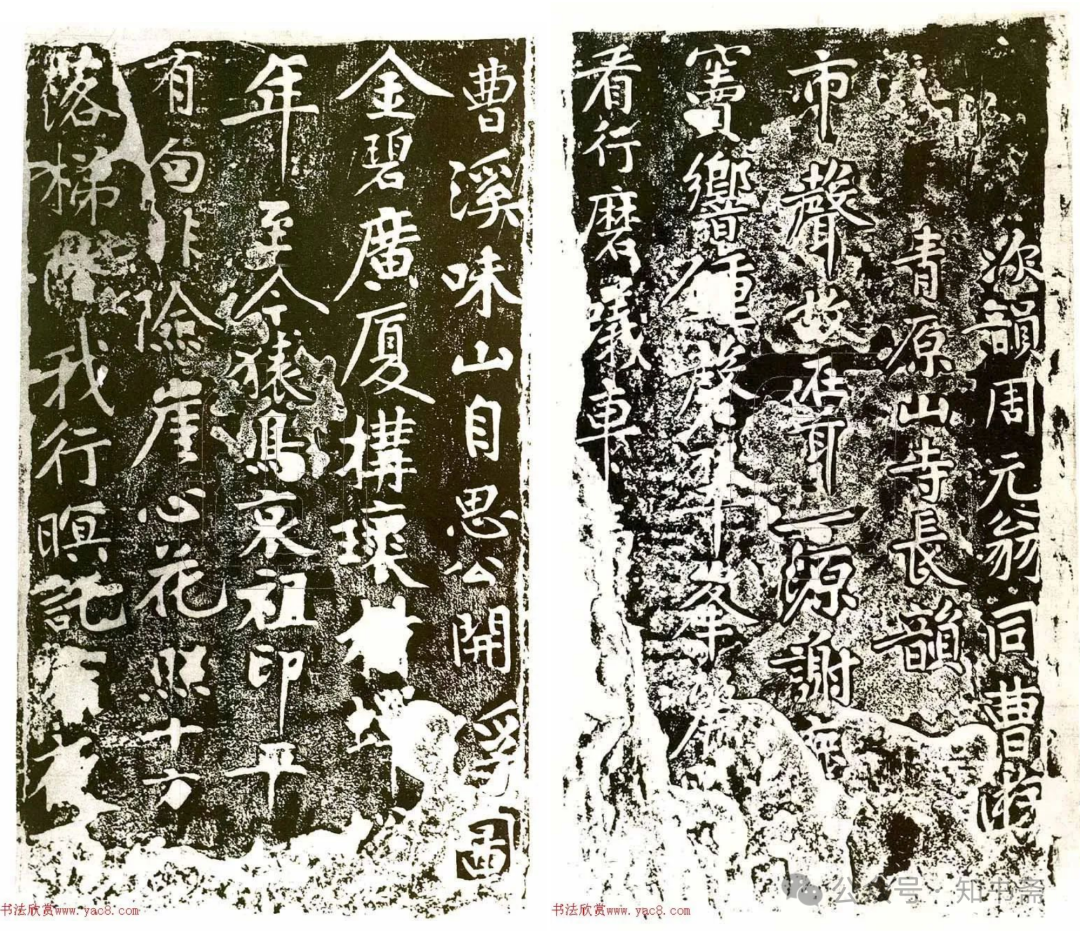 次韻周元翁同曹游
青原山寺長韻
市聲故在耳一源謝塵
竇響鍾磬翠峯麗
看行磨蟻車
曹溪味山自思公開浮圖
金碧廣厦構瓌材蟬
年至今猿鳥哀祖印平
有句非險崖心花照十方
落梯階我行暝託宿夜
书法欣赏www.yac8.com
书法欣赏www.yac8.com
公众号·知书斋